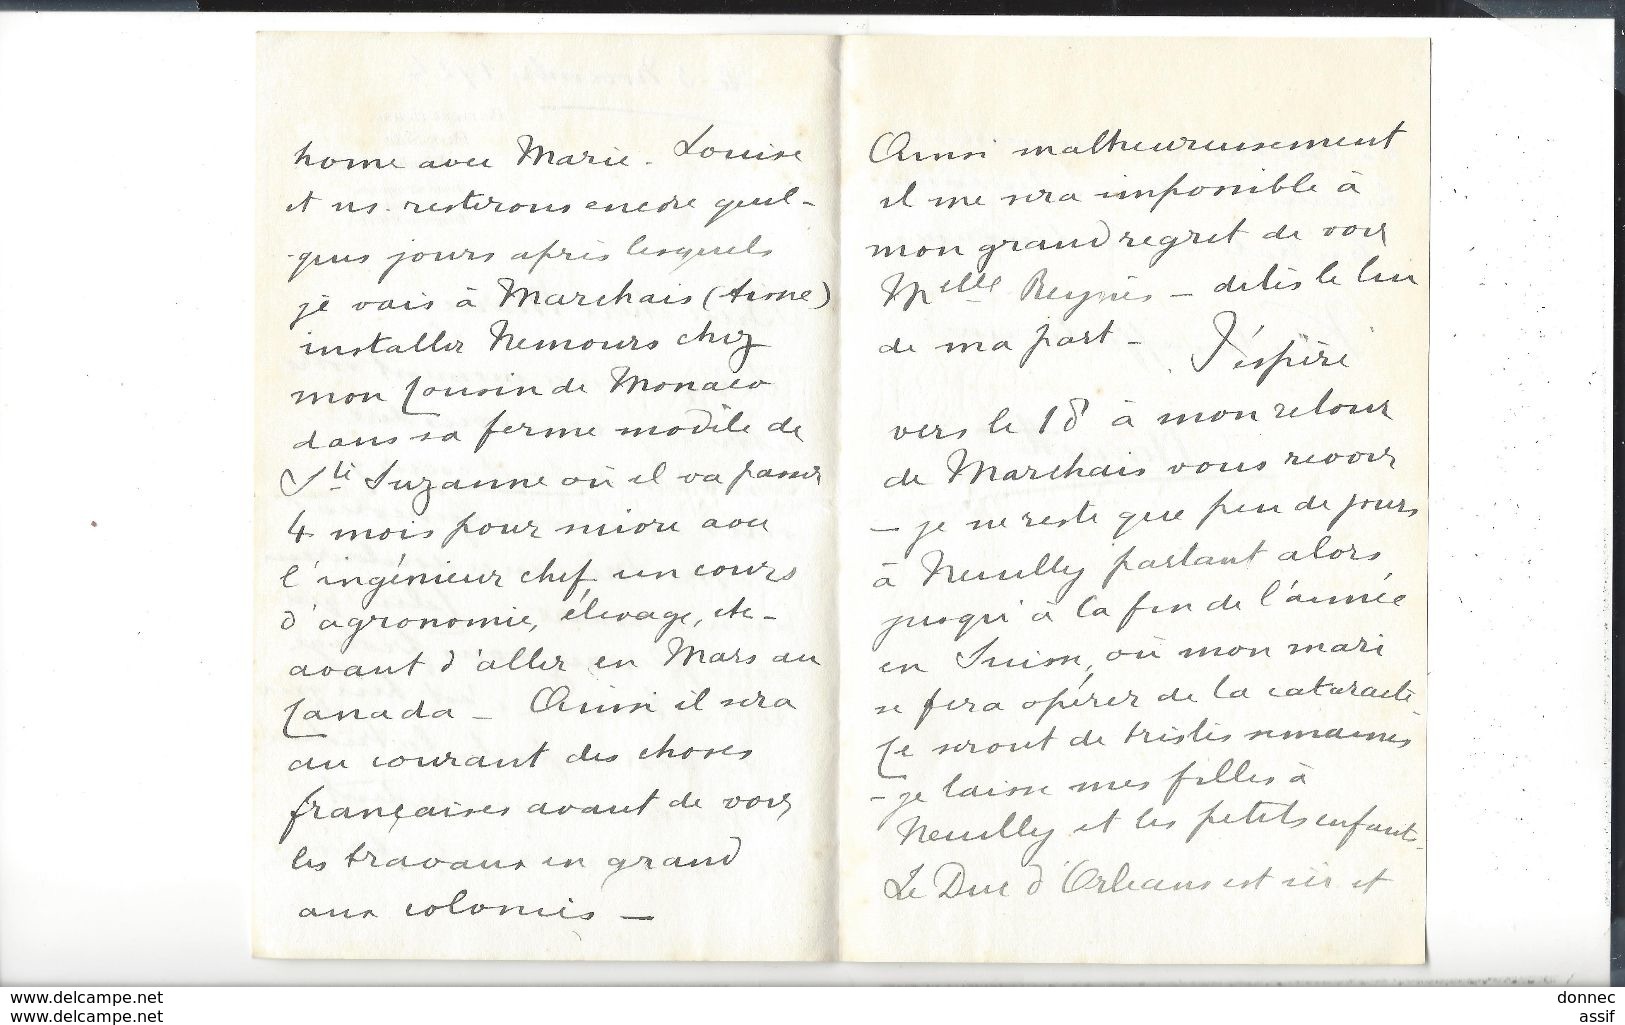 home avec Marie-Louise
et ns. resterons encore quel-
ques jours après lesquels
je vais à Marchais (Aisne)
installer Nemours chez
mon Cousin de Monaco
dans sa ferme modèle de
Ste Suzanne où il va passer
4 mois pour suivre avec
l'ingénieur chef un cours
d'agronomie, élevage, etc-
avant d'aller en Mars au
Canada - Ainsi il sera
au courant des choses
françaises avant de voir
les travaux en grand
aux colonies -
Ainsi malheureusement
il me sera impossible à
mon grand regret de voir
Melle Reynès - dites le lui
de ma part - J'espère
vers le 18 à mon retour
de Marchais vous revoir
- je ne reste que peu de jours
à Neuilly partant alors
jusqu'à la fin de l'année
en Suisse, où mon mari
se fera opérer de la cataracte.
Ce seront de tristes semaines
- je laisse mes filles à
Neuilly et les petits enfants.
Le Duc d'Orléans est ici et
www.delcampe.net
www.delcampe.net
donnec
assif